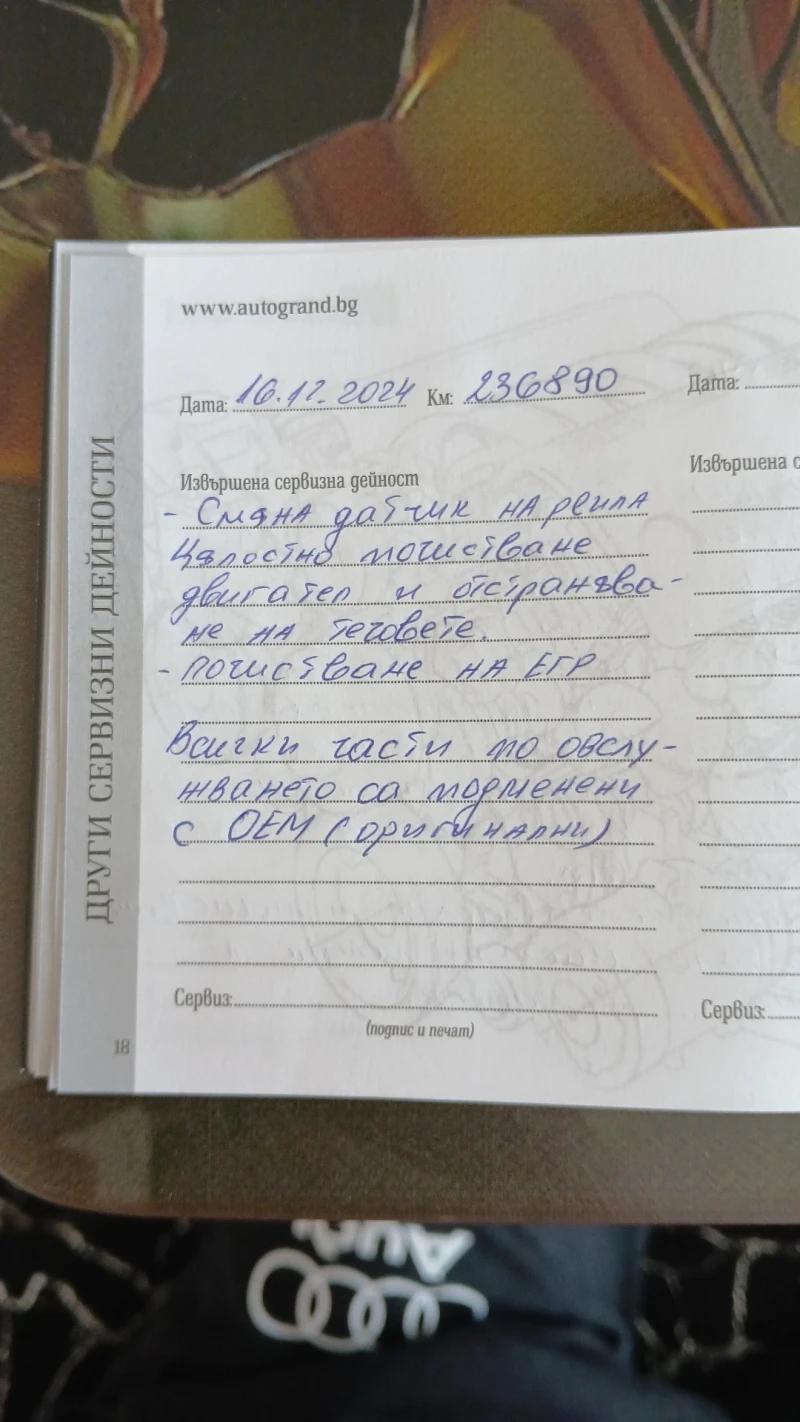 www.autogrand.bg
Дата: 16.12.2024 Км: 236890
Дата:
ДРУГИ СЕРВИЗНИ ДЕЙНОСТИ
Извършена сервизна дейност
- Смяна датчик на реила
Цялостно почистване
двигател и отстранява-
не на теговете.
- почистване на ЕГР
Всички части по обслу-
жването са подменени
с ОЕМ (оригинални)
Сервиз:
(подпис и печат)
18
Извършена с
Сервиз:
Audi